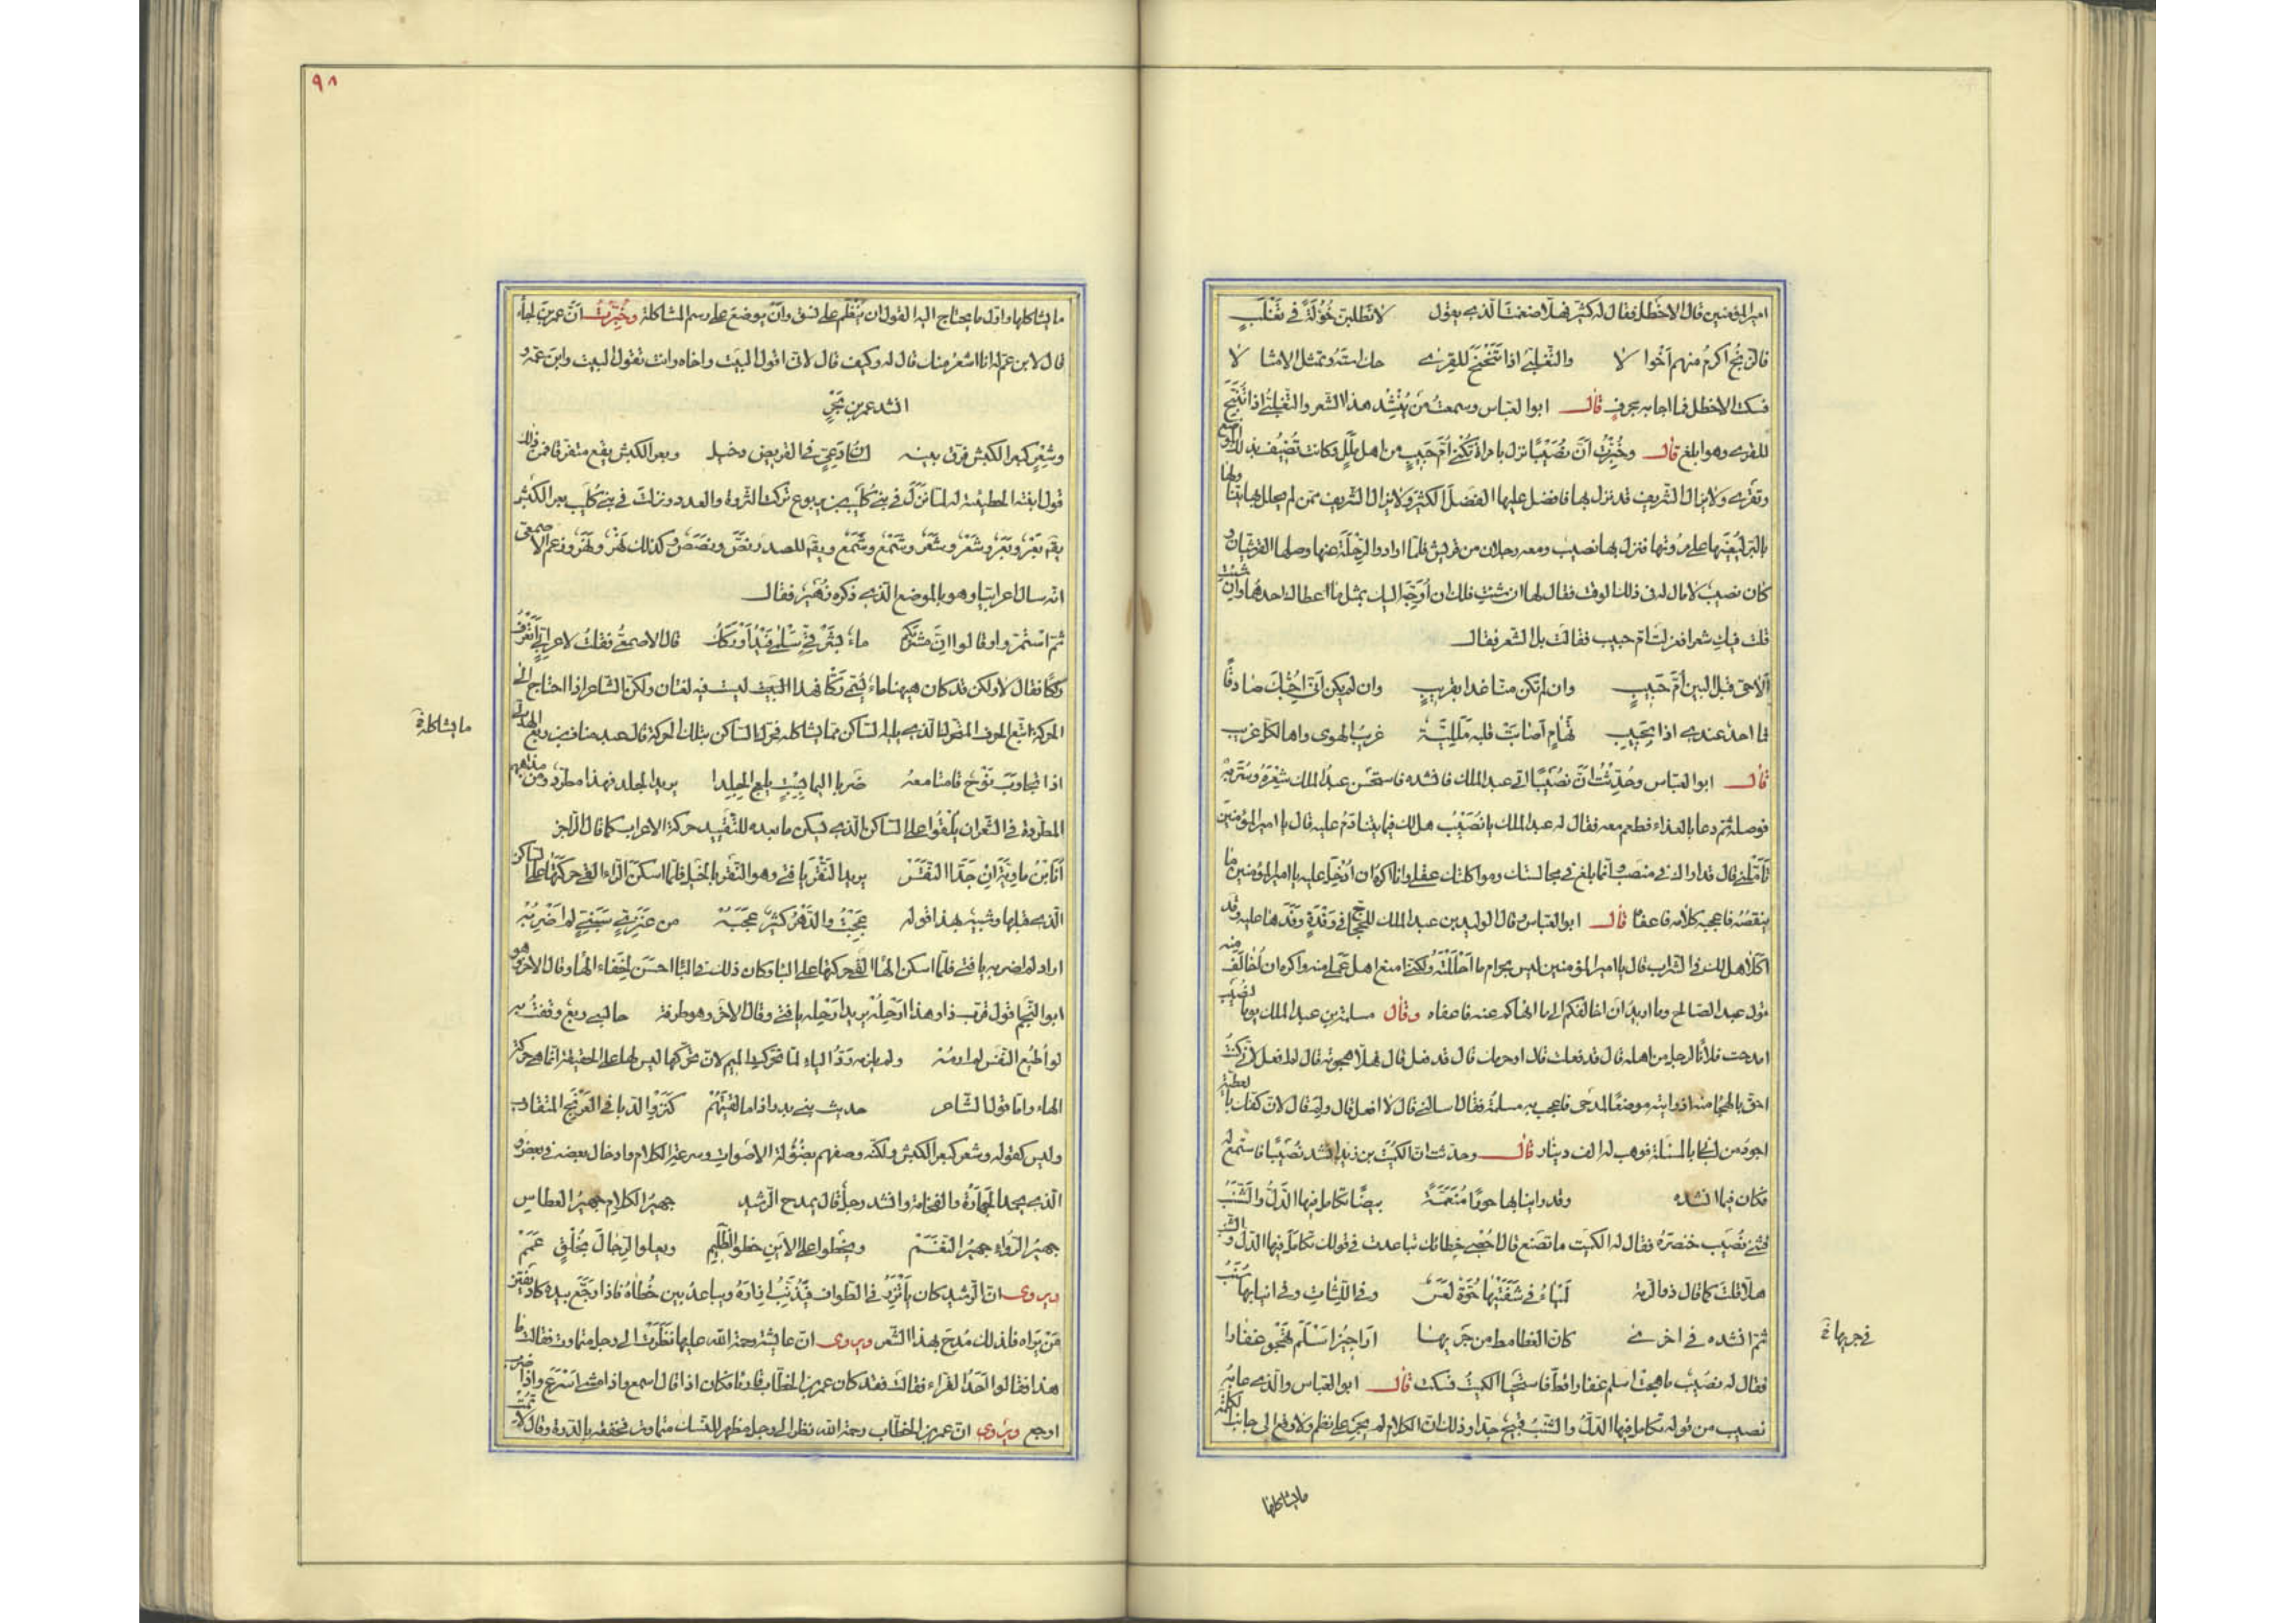 امير المؤمنين قال الاخطل فقال له كثير فهلا ضغمت الذي يقول لا تطلبن خؤلة في تغلب
فالزنج اكرم منهم اخوالا والتغلبي اذا تنحنح للقرى حك استه وتمثل الامثالا
فسكت الاخطل فما اجابه بحرف قال ابو العباس وسمعت من ينشد هذا الشعر والتغلبي اذا تنبح
للقرى وهو ابلغ قال وخبرت ان نصيبا نزل بامراة تكنى ام حبيب من اهل ملل وكانت تضيف بذلك الموضع
وتقرى ولا يزال الشريف قد نزل بها فافضل عليها الفضل الكثير ولا يزال الشريف ممن لم يحلل بها يتناولها
بالبر ليعينها على مروتها فنزل بها نصيب ومعه رجلان من قريش فلما ارادوا الرحلة عنها وصلها القرشيان و
كان نصيب لا مال له في ذلك الوقت فقال لها ان شئت فلك ان اوجه اليك بمثل ما اعطاك احدهما وان شئت
قلت فيك شعرا فغزلت ام حبيب فقالت بل الشعر فقال
الا حي قبل البين ام حبيب وان لم تكن منا غدا بقريب وان لم يكن اني احبك صادقا
فما احد عندي اذا بحبيب تهام اصابت قلبه مللية غريب الهوى واها لكل غريب
قال ابو العباس وحدثت ان نصيبا اتى عبد الملك فانشده فاستحسن عبد الملك شعره وسر به
فوصله ثم دعا بالغداء فطعم معه فقال له عبد الملك يا نصيب هل لك فيما يتنادم عليه قال يا امير المؤمنين
تأملني قال قد اراك في منصب وانما بلغ في مجالستك ومواكلتك عقلي وانا اكره ان ادخل عليه يا امير المؤمنين ما
ينقصه فاعجبه كلامه فاعفا قال ابو العباس وقال الوليد بن عبد الملك للحجاج في وفدة وفدها عليه وقد
اكلا هل لك في الشراب قال يا امير المؤمنين ليس بحرام ما احللته ولكني امنع اهل عملي منه واكره ان اخالف
قول عبد الصالح وما اريد ان اخالفكم الى ما انهاكم عنه فاعفاه وقال مسلمة بن عبد الملك يوما لنصيب
امدحت فلانا لرجل من اهله قال قد فعلت قال اوحرمك قال قد فعل قال فهلا هجوته قال لم افعل لاني كنت
احق بالهجا منه اذ رايته موضعا لمدحي فاعجب به مسلمة فقال اسالني قال لا افعل قال ولم قال لان كفك بالعطية
اجود من لساني بالمسئلة فوهب له الف دينار قال وحدثت ان الكميت بن زيد انشد نصيبا فاستمع له
فكان فيما انشده وقد راينا بها حورا منعمة بيضا تكامل فيها الدل والشنب
فثنى نصيب خنصره فقال له الكميت ما تصنع قال احصي خطائك تباعدت في قولك تكامل فيها الدل والشنب
هلا قلت كما قال ذو الرمة لمياء في شفتيها حوة لعس وفي اللثات وفي انيابها شنب
ثم انشده في اخرى كان الغطامط من جريها اراجيز اسلم تهجو غفارا
فقال له نصيب ما هجت اسلم غفارا قط فاستحيا الكميت فسكت قال ابو العباس والذي عابه
نصيب من قوله تكامل فيها الدل والشنب قبيح جدا وذلك ان الكلام لم يجر على نظم ولا وقع الى جانب الكلمة
ما يشاكلها
٩٨
ما يشاكلها واول ما يحتاج اليه القول ان ينظم على نسق وان يوضع على رسم المشاكلة وخبرت ان عمر بن لجأ
قال لابن عم له انا اشعر منك قال له وكيف قال لاني اقول البيت واخاه وانت تقول البيت وابن عمه و
انشد عمر بن بحر
وشعر كبعر الكبش فرق بينه لسان دعي في القريض دخيل وبعر الكبش يقع متفرقا فمن ذلك
قول ابنة الحطيئة له لما نزل في بني كليب بن يربوع تركت الثروة والعدد ونزلت في بني كليب بعر الكبش
يقه بعر وبعر وشعر وشعر وشمع وشمع ويقه للصدر نص ونصص وكذلك نهر ونهر وزعم الاصمعي
انه سال اعرابيا وهو بالموضع الذي ذكره زهير فقال
ثم استمروا وقالوا ان مشربكم ماء بشرقي سلمى فيد او ركك قال الاصمعي فقلت لاعرابي اتعرف
رككا فقال لا ولكن قد كان هيهنا ماء يسمى ركا فهذا البيت ليست فيه لغتان ولكن الشاعر اذا احتاج الى
الحركة اتبع الحرف المضول الذي يليه الساكن مما يشاكله فحرك الساكن بتلك الحركة قال عبد مناف بن ربع الهذلي
اذا تجاوب نوح قامتا معه ضربا اليما بسبت يلعج الجلدا يريد الجلد فهذا مطرد ومن مذاهبهم
المطردة في الشعر ان يلقوا على الساكن الذي يسكن ما بعده للتقييد حركة الاعراب كما قال الراجز
انا ابن ماوية اذ جد النقر يريد النقر يا فتى وهو النقر بالخيل فلما اسكن الراء القى حركتها على الساكن
الذي قبلها وشبيه بهذا قوله عجبت والدهر كثير عجبه من عنزي سبني لم اضربه
اراد لم اضربه يا فتى فلما اسكن الها القى حركتها على البا وكان ذلك في البا احسن لخفاء الها وقال الاخر وهو
ابو النجم اقول قرب ذا وهذا ازحله يريد ازحله يا فتى وقال الاخر وهو طرفة حابسي ربع وقفت به
لو اطيع النفس لم ارمه ولم يلزمه رد الياء لما تحركت الميم لان تحركها ليس لها على الحقيقة انما هي حركة
الهاء واما قول الشاعر حديث بني بدر اذا ما لقيتهم كنزو الدبا في العرفج المتقارب
وليس كقوله وشعر كبعر الكبش ولكنه وصفهم بضؤلة الاصوات وسرعة الكلام وادخال بعضه في بعض و
الذي يحمد الجهارة والفخامة وانشد رجل قال يمدح الرشيد جهير الكلام جهير العطاس
جهير الرواء جهير النغم ويخطو على الاين خطو الظليم ويعلو الرجال بخلق عمم
ويروى ان الرشيد كان ياتزر في الطواف فيذنب ازاره ويباعد بين خطاه فاذا رجع بيده كاد يفتن
من يراه فلذلك مدح بهذا الشعر ويروى ان عايشة رحمة الله عليها نظرت الى رجل متماوت فقالت ما
هذا فقالوا احد القراء فقالت فقد كان عمر بن الخطاب قارئا فكان اذا قال اسمع واذا مشى اسرع واذا ضرب
اوجع ويروى ان عمر بن الخطاب رحمة الله نظر الى رجل مظهر للنسك متماوت فخفقه بالدرة وقال لا تمت
ما يشاكله
في جريها